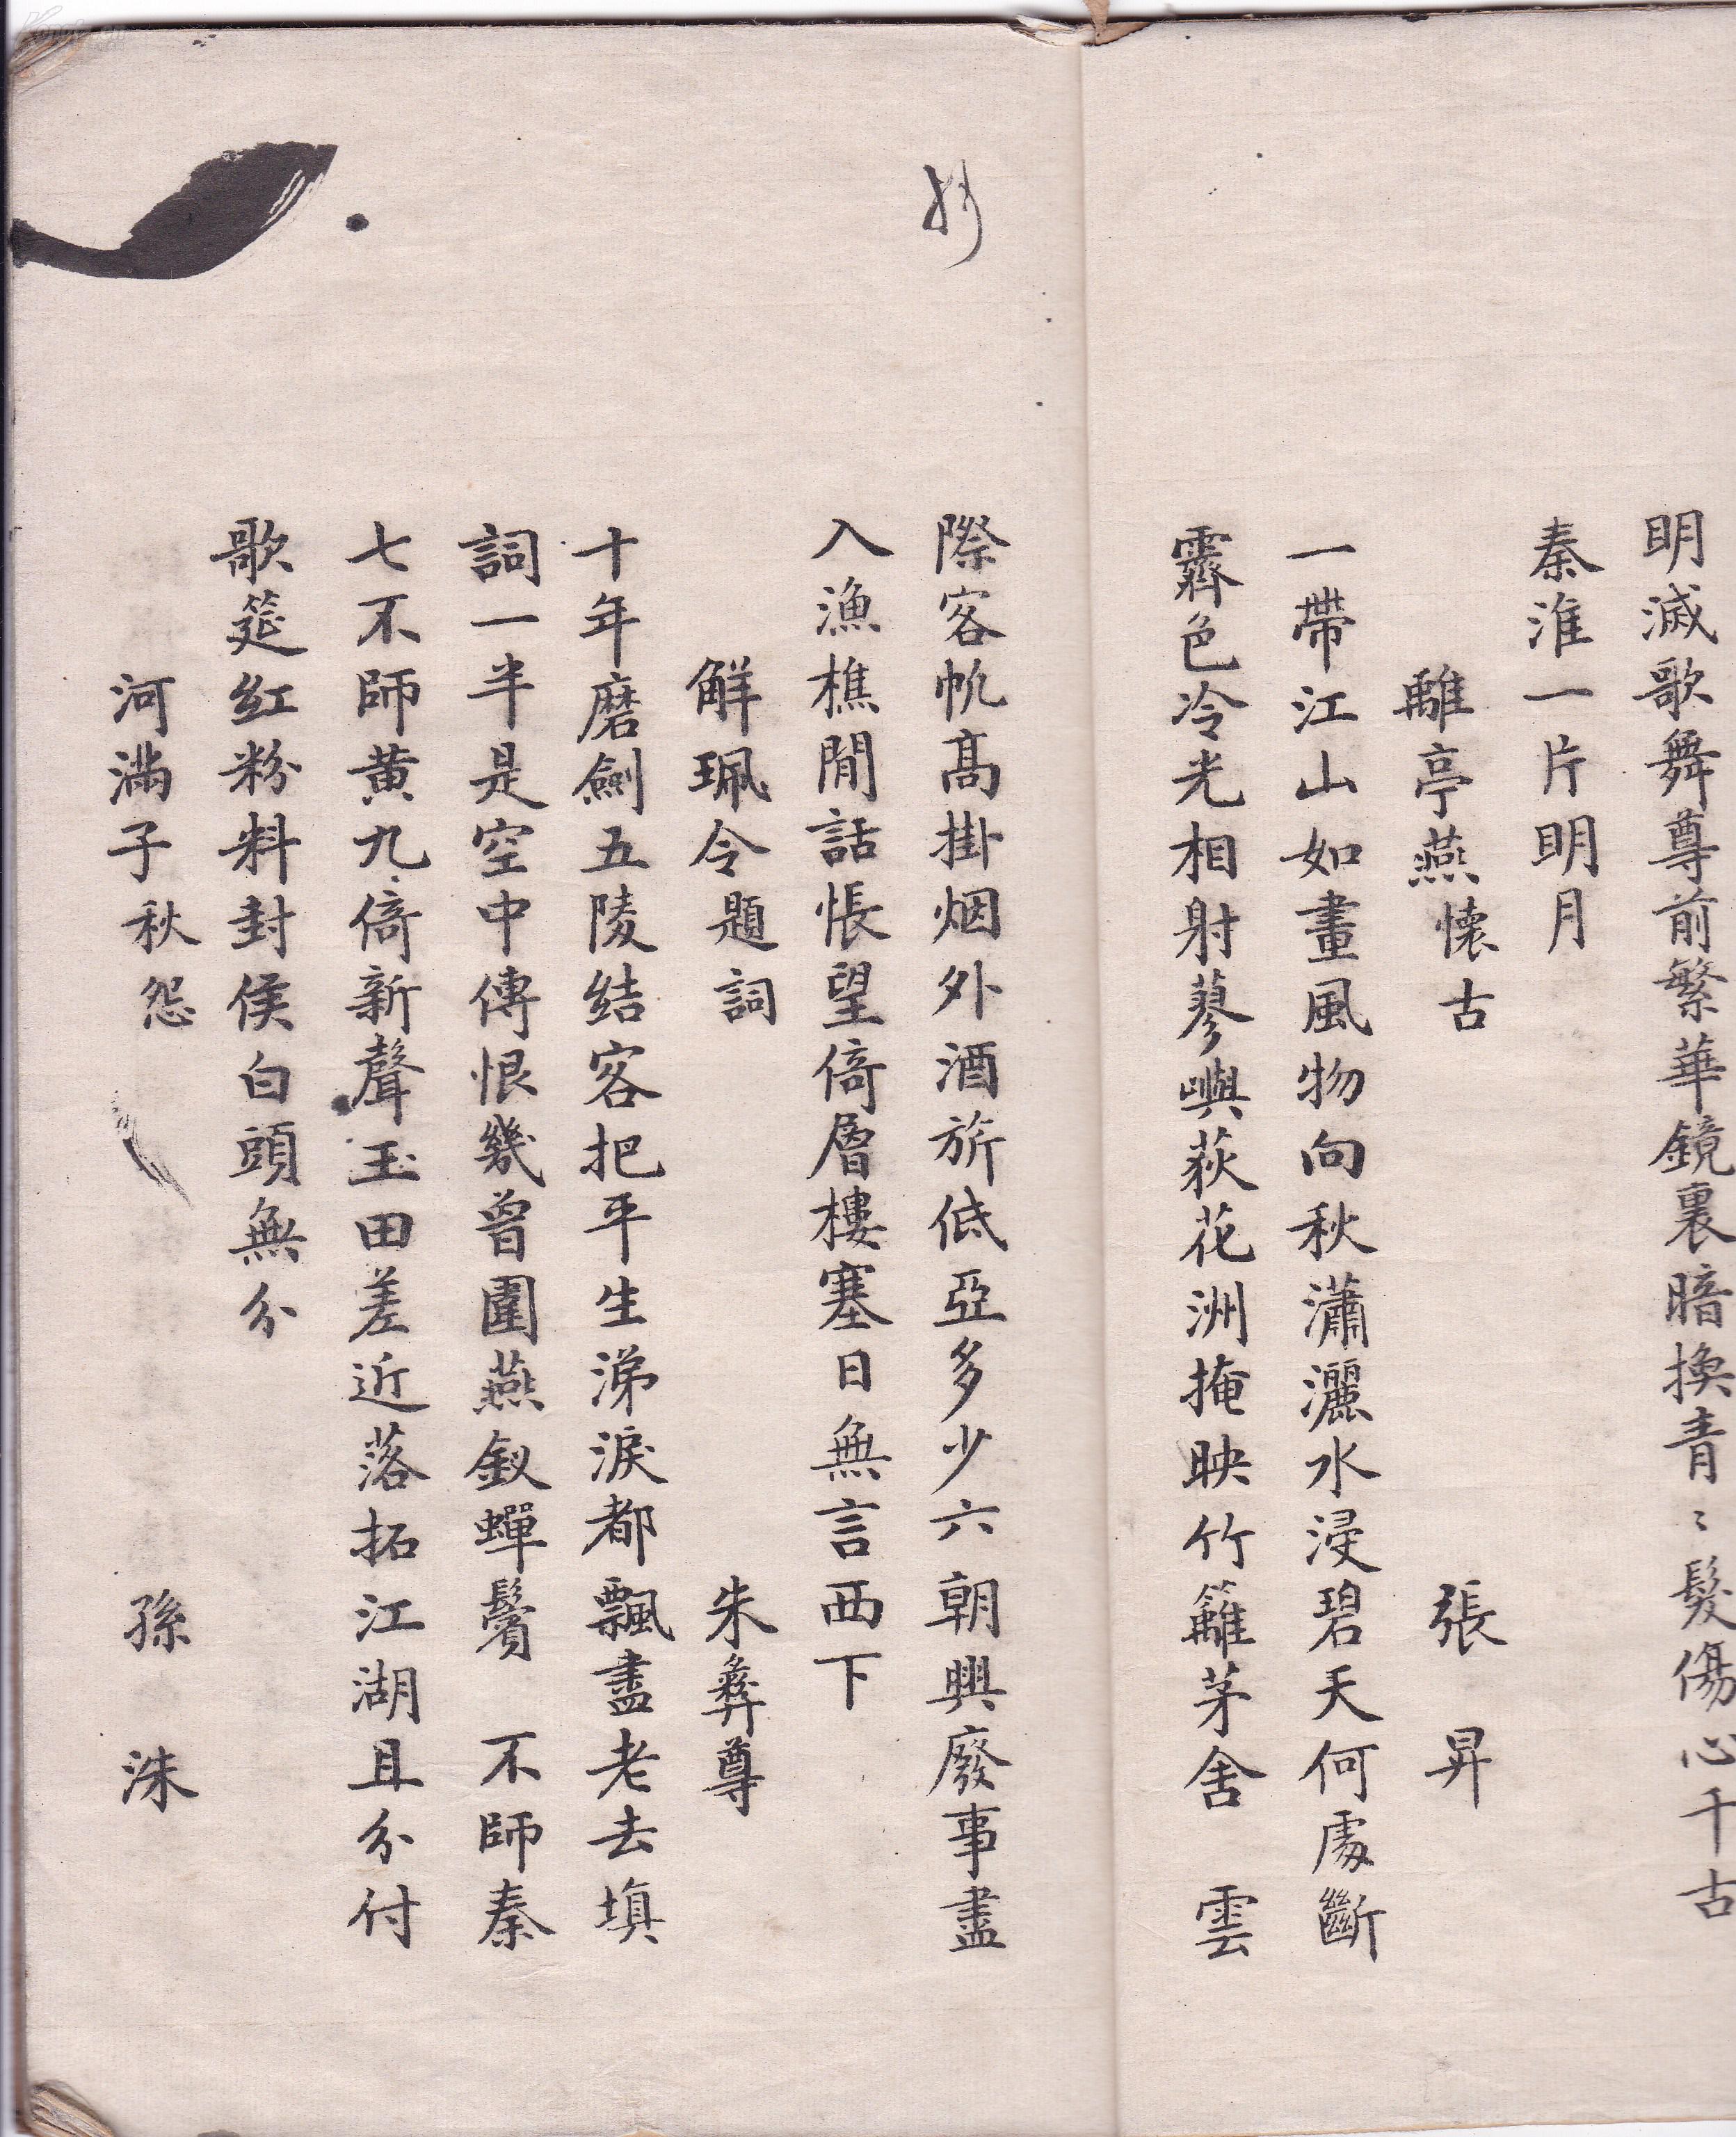 明滅歌舞尊前繁華鏡裏暗換青〻髮傷心千古
秦淮一片明月
離亭燕 懐古 張昇
一帶江山如畫風物向秋瀟灑水浸碧天何處斷
霽色冷光相射蓼嶼荻花洲掩映竹籬茅舍 雲
際客帆高掛烟外酒旂低亞多少六朝興廢事盡
入漁樵閒話悵望倚層樓塞日無言西下
解珮令 題詞 朱彝尊
十年磨劍五陵結客把平生涕淚都飄盡老去填
詞一半是空中傳恨幾曾圍燕釵蟬鬢 不師秦
七不師黄九倚新聲玉田差近落拓江湖且分付
歌筵紅粉料封侯白頭無分
河滿子 秋怨 孫洙